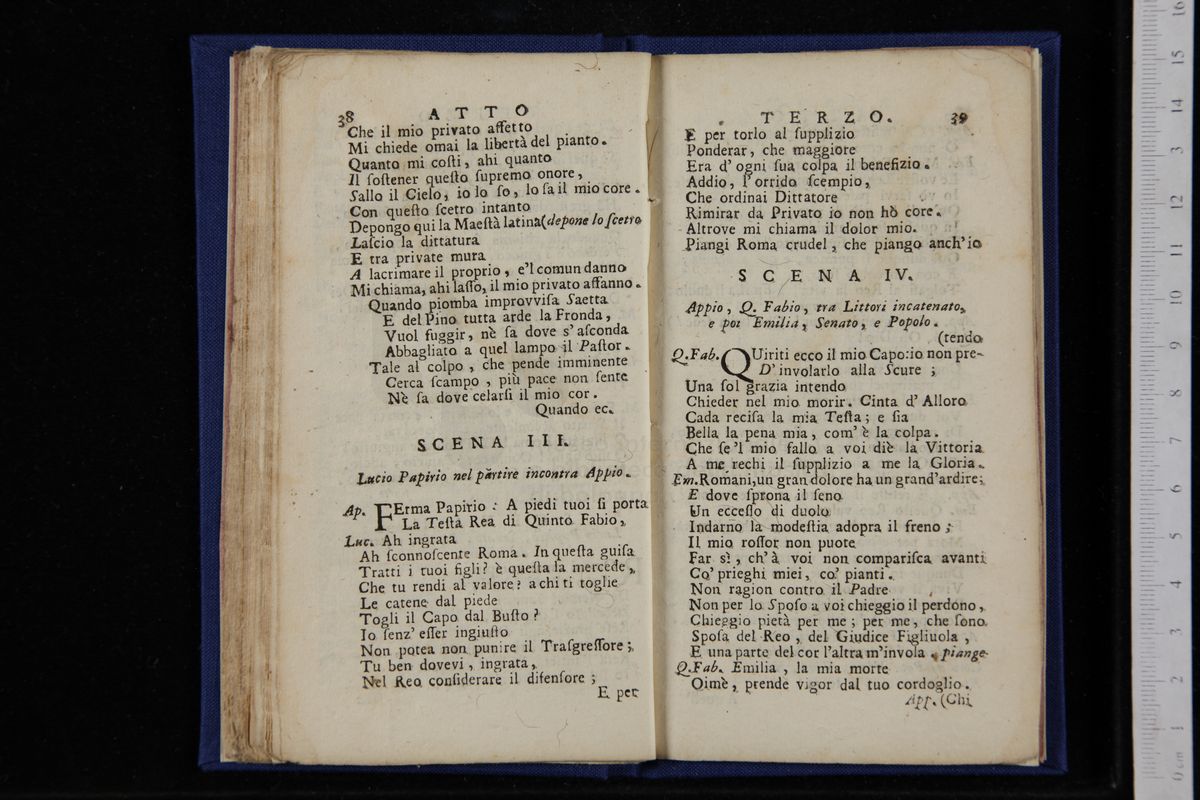 38 ATTO
Che il mio privato affetto
Mi chiede omai la libertà del pianto.
Quanto mi coſti, ahi quanto
Il ſoſtener queſto ſupremo onore,
Sallo il Cielo, io lo ſo, lo ſa il mio core.
Con queſto ſcetro intanto
Depongo qui la Maeſtà latina (depone lo ſcetro
Laſcio la dittatura
E tra private mura
A lacrimare il proprio, e'l comun danno
Mi chiama, ahi laſſo, il mio privato affanno.
Quando piomba improvviſa Saetta
E del Pino tutta arde la Fronda,
Vuol fuggir, nè ſa dove s' aſconda
Abbagliato a quel lampo il Paſtor.
Tale al colpo, che pende imminente
Cerca ſcampo, più pace non ſente
Nè ſa dove celarſi il mio cor.
Quando ec.
SCENA III.
Lucio Papirio nel partire incontra Appio.
Ap. FErma Papirio: A piedi tuoi ſi porta
La Teſta Rea di Quinto Fabio,
Luc. Ah ingrata
Ah ſconnoſcente Roma. In queſta guiſa
Tratti i tuoi figli? è queſta la mercede,
Che tu rendi al valore? a chi ti toglie
Le catene dal piede
Togli il Capo dal Buſto?
Io ſenz' eſſer ingiuſto
Non potea non punire il Traſgreſſore;
Tu ben dovevi, ingrata,
Nel Reo conſiderare il difenſore;
E per
TERZO. 39
E per torlo al ſupplizio
Ponderar, che maggiore
Era d' ogni ſua colpa il benefizio.
Addio, l' orrido ſcempio,
Che ordinai Dittatore
Rimirar da Privato io non hò core.
Altrove mi chiama il dolor mio.
Piangi Roma crudel, che piango anch' io
SCENA IV.
Appio, Q. Fabio, tra Littori incatenato,
e poi Emilia, Senato, e Popolo.
(tendo
Q.Fab. QUiriti ecco il mio Capo:io non pre-
D' involarlo alla Scure;
Una ſol grazia intendo
Chieder nel mio morir. Cinta d' Alloro
Cada reciſa la mia Teſta; e ſia
Bella la pena mia, com' è la colpa.
Che ſe 'l mio fallo a voi diè la Vittoria
A me rechi il ſupplizio a me la Gloria.
Em. Romani, un gran dolore ha un grand' ardire;
E dove ſprona il ſeno
Un ecceſſo di duolo
Indarno la modeſtia adopra il freno;
Il mio roſſor non puote
Far sì, ch' à voi non compariſca avanti
Co' prieghi miei, co' pianti.
Non ragion contro il Padre
Non per lo Spoſo a voi chieggio il perdono,
Chieggio pietà per me; per me, che ſono
Spoſa del Reo, del Giudice Figliuola,
E una parte del cor l'altra m'invola. piange
Q.Fab. Emilia, la mia morte
Oimè, prende vigor dal tuo cordoglio.
App. (Chi
16
15
14
13
12
11
10
9
8
7
6
5
4
3
2
1
0 cm